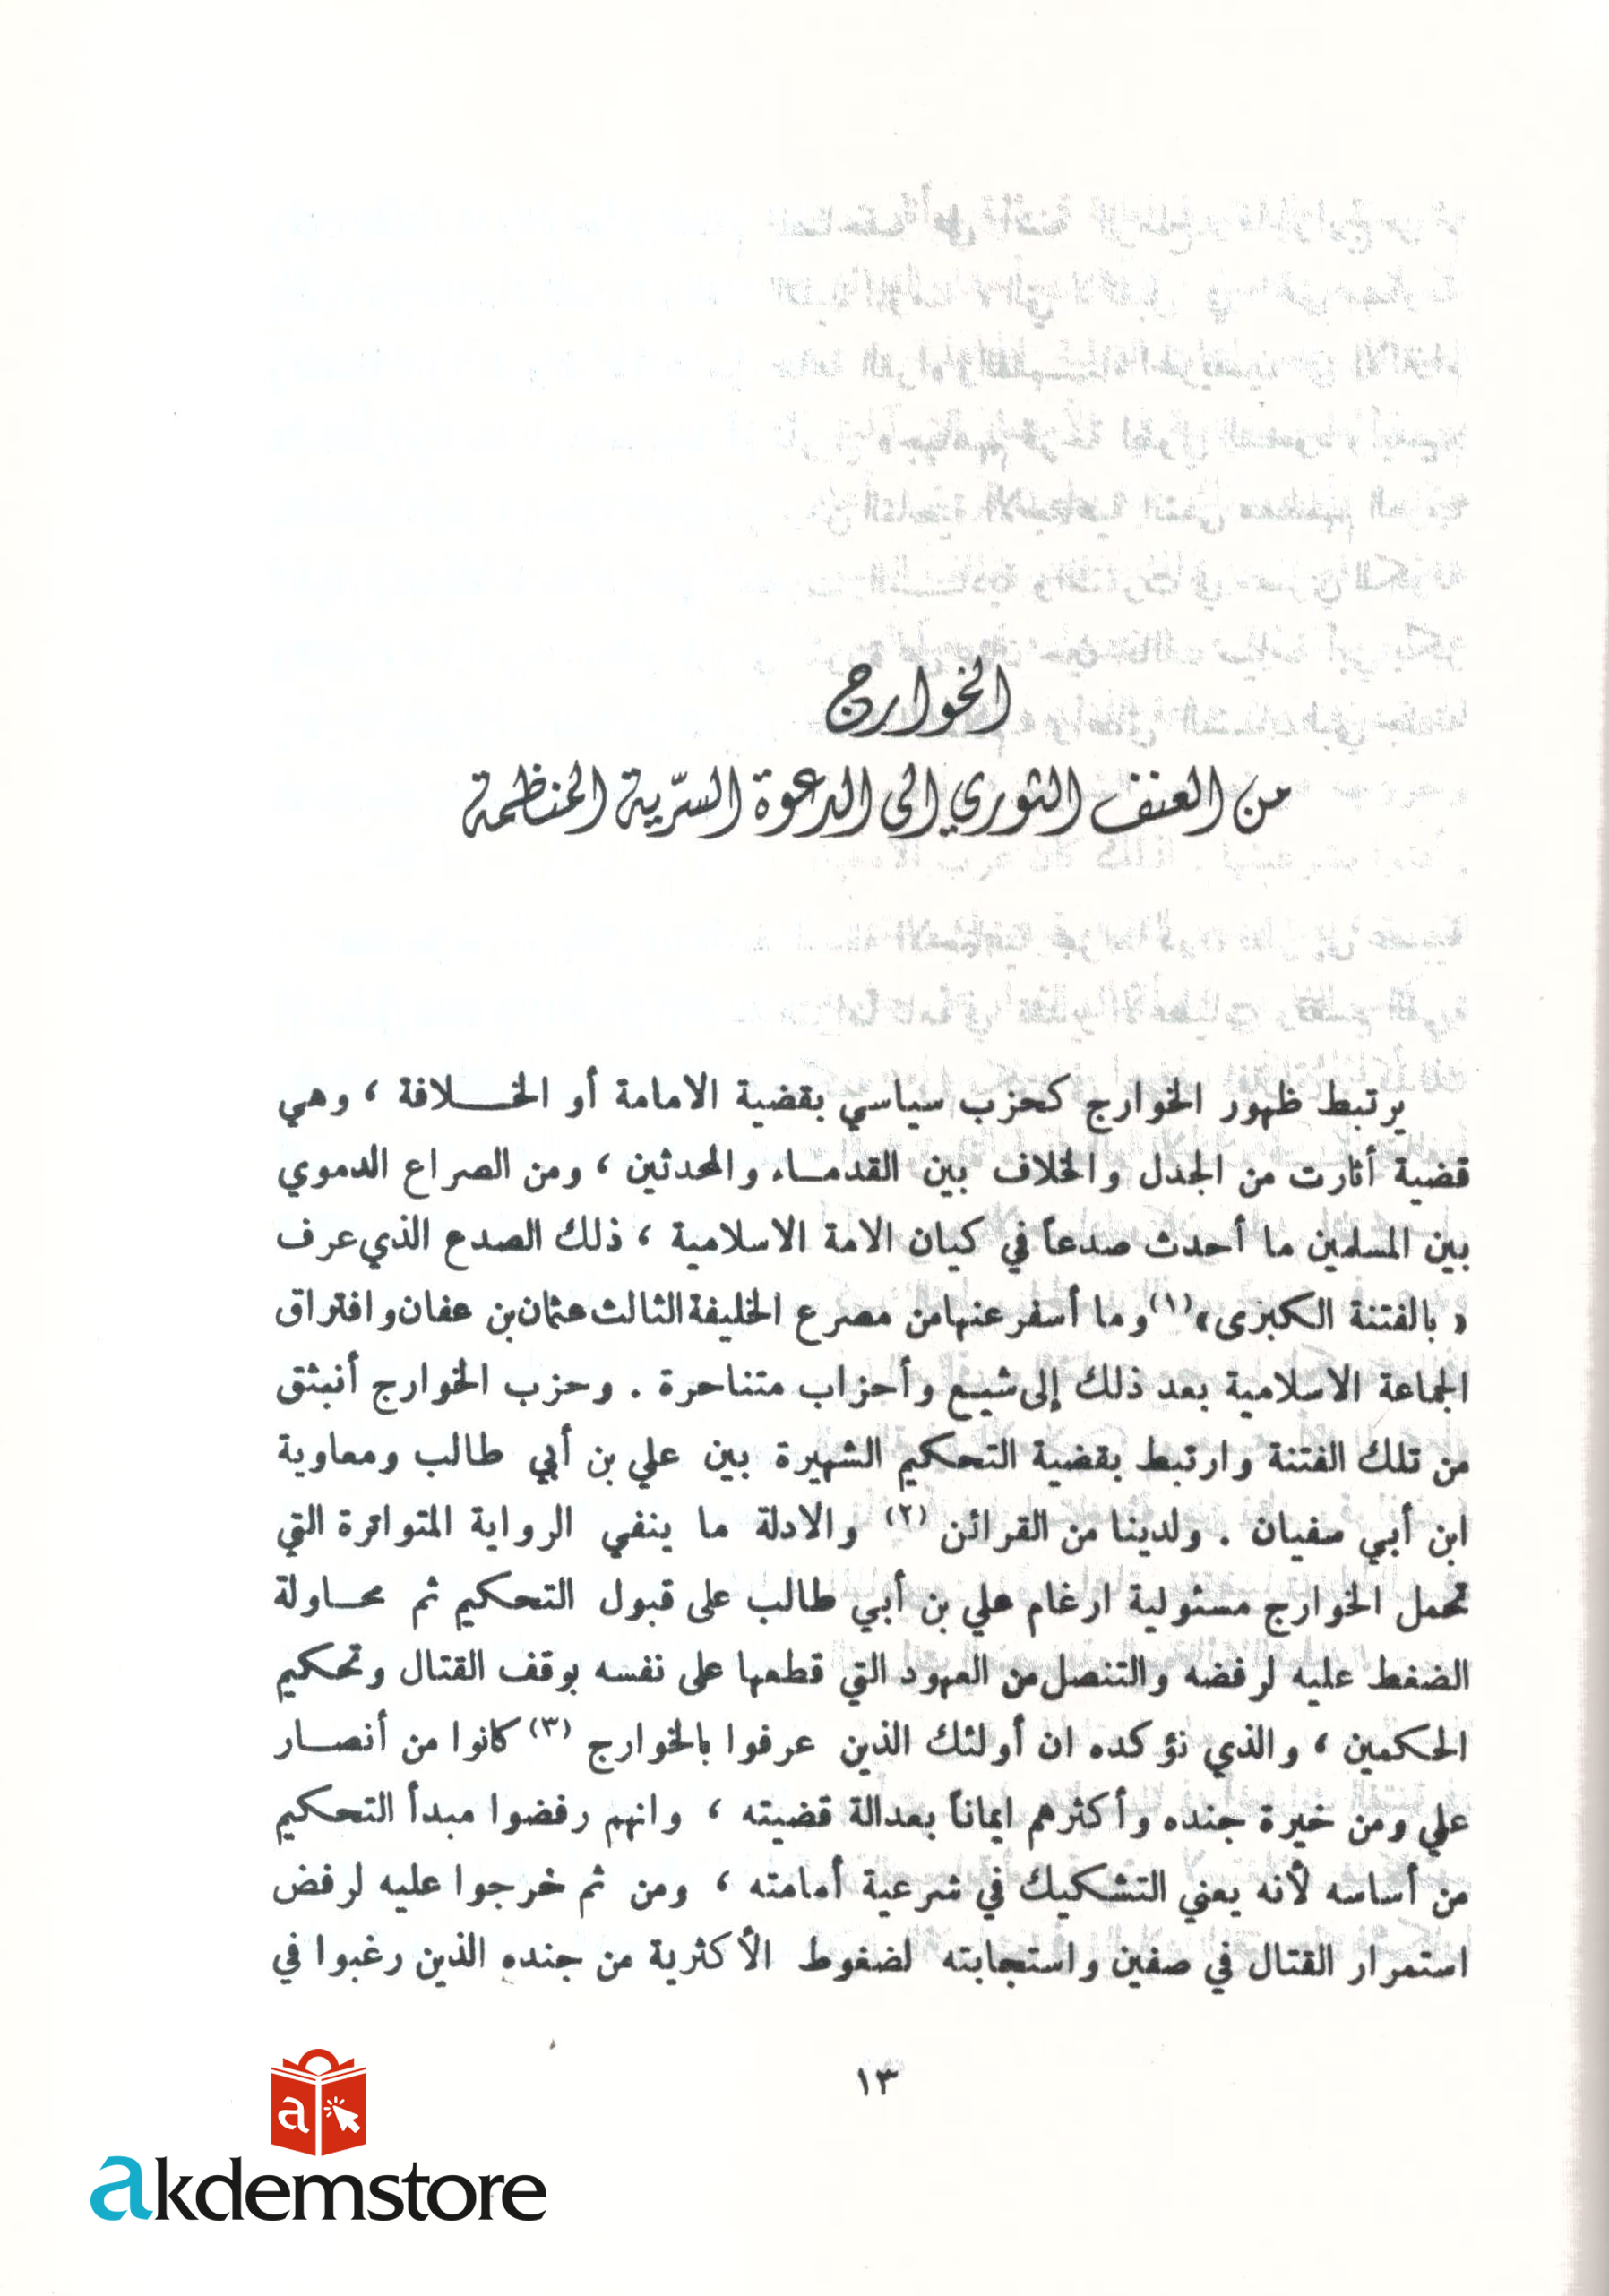 الخوارج
من العنف الثوري الى الدعوة السرّية المنظمة
يرتبط ظهور الخوارج كحزب سياسي بقضية الامامة أو الخـــلافة ، وهي
قضية أثارت من الجدل والخلاف بين القدمــاء والمحدثين ، ومن الصراع الدموي
بين المسلمين ما أحدث صدعاً في كيان الامة الاسلامية ، ذلك الصدع الذي عرف
« بالفتنة الكبرى »(١) وما أسفر عنها من مصرع الخليفة الثالث عثمان بن عفان وافتراق
الجماعة الاسلامية بعد ذلك إلى شيـع وأحزاب متناحرة . وحزب الخوارج أنبثق
من تلك الفتنة وارتبط بقضية التحكيم الشهيرة بين علي بن أبي طالب ومعاوية
ابن أبي سفيان . ولدينا من القرائن (٢) والادلة ما ينفي الرواية المتواترة التي
تحمل الخوارج مسئولية ارغام علي بن أبي طالب على قبول التحكيم ثم محــاولة
الضغط عليه لرفضه والتنصل من العهود التي قطعها على نفسه بوقف القتال وتحكيم
الحكمين ، والذي نؤكده ان أولئك الذين عرفوا بالخوارج (٣) كانوا من أنصــار
علي ومن خيرة جنده وأكثرهم ايماناً بعدالة قضيته ، وانهم رفضوا مبدأ التحكيم
من أساسه لأنه يعني التشكيك في شرعية أمامته ، ومن ثم خرجوا عليه لرفض
استمرار القتال في صفين واستجابته لضغوط الأكثرية من جنده الذين رغبوا في
١٣
a
akdemstore